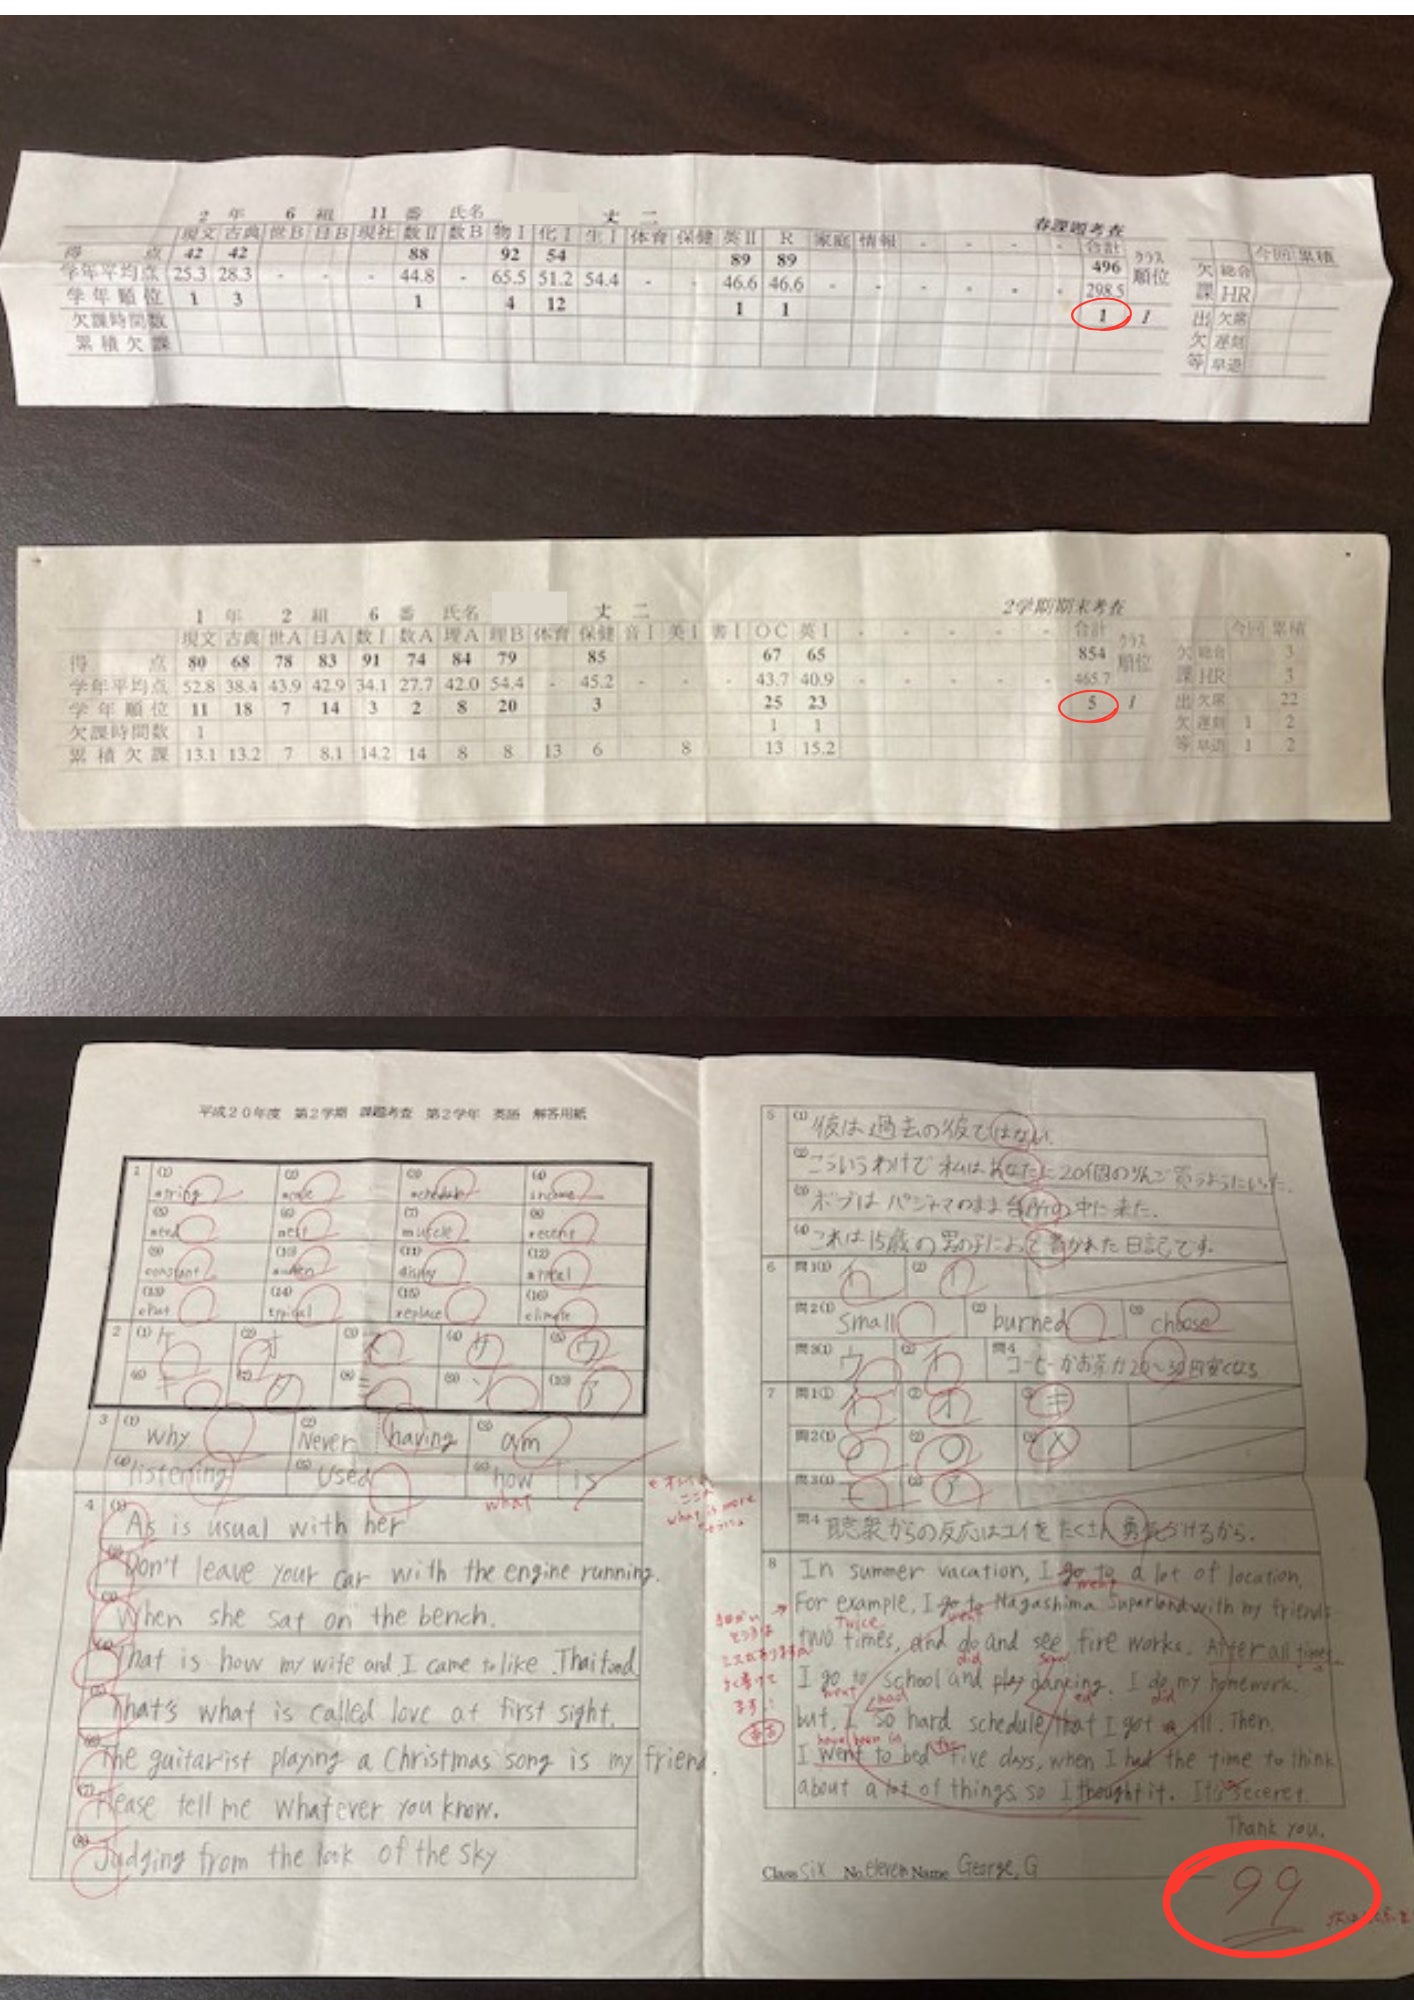 2 年 6 組 11 番 氏名 丈 二 春課題考査
現文 古典 世B 日B 現社 数Ⅱ 数B 物Ⅰ 化Ⅰ 生Ⅰ 体育 保健 英Ⅱ R 家庭 情報 - - - - 合計 クラス順位 今回 累積
得点 42 42 88 92 54 89 89 496 欠課 総合
学年平均点 25.3 28.3 - - - 44.8 - 65.5 51.2 54.4 - - 46.6 46.6 - - - - - - 298.5 HR
学年順位 1 3 1 4 12 1 1 1 1 出欠等 欠席
欠課時間数 遅刻
累積欠課 早退
1 年 2 組 6 番 氏名 丈 二 2学期期末考査
現文 古典 世A 日A 数Ⅰ 数A 理A 理B 体育 保健 音Ⅰ 美Ⅰ 書Ⅰ OC 英Ⅰ - - - - - 合計 クラス順位 今回 累積
得点 80 68 78 83 91 74 84 79 85 67 65 854 欠課 総合 3
学年平均点 52.8 38.4 43.9 42.9 34.1 27.7 42.0 54.4 - 45.2 - - - 43.7 40.9 - - - - - 465.7 HR 3
学年順位 11 18 7 14 3 2 8 20 3 25 23 5 1 出欠等 欠席 22
欠課時間数 1 1 1 遅刻 1 2
累積欠課 13.1 13.2 7 8.1 14.2 14 8 8 13 6 8 13 15.2 早退 1 2
平成20年度 第2学期 課題考査 第2学年 英語 解答用紙
1 (1) string (2) (3) schedule (4) income
(5) need (6) (7) muscle (8) recent
(9) constant (10) (11) display (12)
(13) chat (14) typical (15) replace (16) climate
2 (1) ケ (2) オ (3) (4) サ (5) ウ
(6) キ (7) タ (8) ニ (9) ソ (10) ア
3 (1) why (2) Never having (3) am
(4) listening (5) used (6) how is
what
what is more
4 (1) As is usual with her
(2) Don't leave your car with the engine running.
(3) When she sat on the bench.
(4) That is how my wife and I came to like Thai food
(5) That's what is called love at first sight.
(6) The guitarist playing a Christmas song is my friend.
(7) Please tell me whatever you know.
(8) Judging from the look of the sky
5 (1) 彼は過去の彼ではない.
(2) こういうわけで私はあなたに20個のりんご買うようにいった.
(3) ボブはパジャマのまま台所の中に来た.
(4) これは15歳の男の子によって書かれた日記です.
6 問1(1) イ (2) イ
問2(1) small (2) burned (3) choose
問3(1) ウ (2) イ 問4 コーヒーかお茶が20〜30円安くなる
7 問1(1) イ (2) オ (3) キ
問2(1) ○ (2) ○ (3) ×
問3(1) ニ (2) ア
問4 聴衆からの反応はユイをたくさん勇気づけるから.
8 In summer vacation, I go to a lot of location.
went
For example, I go to Nagashima Suparland with my friends
went
Twice
two times, and do and see fire works. After all times
did saw
I go to school and play dancing. I do my homework.
went ed did
but, I so hard schedule that I got a ill. Then.
had
have been in the
I went to bed five days, when I had the time to think
about a lot of things, so I thought it. It's seceret.
Thank you.
Class six No. eleven Name George, G
99